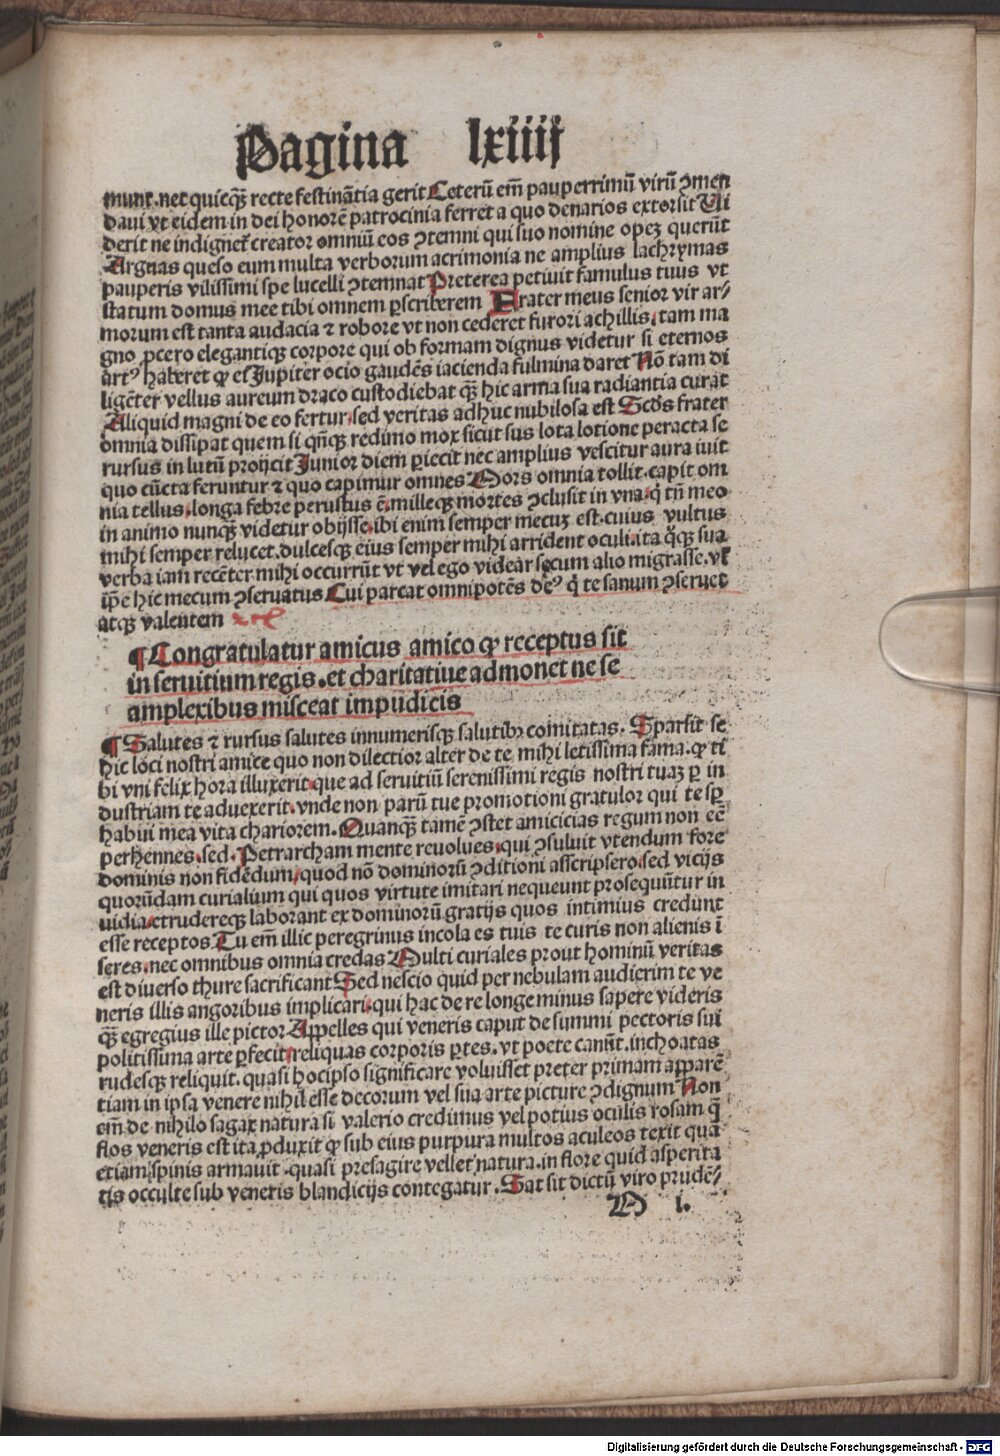 Pagina lxiiij
munt. nec quiequā recte festinātia gerit Ceterū em̄ pauperrimū virū ꝯmen
daui vt eidem in dei honorē patrocinia ferret a quo denarios extorsit Ui
derit ne indignet creator omniū eos ꝯtemni qui suo nomine opeꝫ querūt
Arguas queso eum multa verborum acrimonia ne amplius lachrymas
pauperis vilissimi spe lucelli ꝯtemnat Preterea petiuit famulus tuus vt
statum domus mee tibi omnem ꝑscriberem Frater meus senior vir ar⸗
morum est tanta audacia ⁊ robore vt non cederet furori achillis, tam ma
gno ꝓcero elegantiqꝫ corpore qui ob formam dignus videtur si eternos
artꝰ haberet ꝙ ei Jupiter ocio gaudēs iacienda fulmina daret Nō tam di
ligēter vellus aureum draco custodiebat qꝫ̄ hic arma sua radiantia curat
Aliquid magni de eo fertur, sed veritas adhuc nubilosa est Scd̄s frater
omnia dissipat quem si qn̄qꝫ redimo mox sicut sus lota lotione peracta se
rursus in lutū proijcit Junior diem ꝑiecit nec amplius vescitur aura iuit
quo cūcta feruntur ⁊ quo capimur omnes Mors omnia tollit. capit om
nia tellus, longa febre perustus ē. milleqꝫ mortes ꝯclusit in vna. q̄ tn̄ meo
in animo nunqꝫ̄ videtur obijsse, ibi enim semper mecuꝫ est. cuius vultus
mihi semper relucet. dulcesqꝫ eius semper mihi arrident oculi. ita q̊qꝫ sua
verba iam recēter mihi occurrūt vt vel ego videar secum alio migrasse. vl̄
ip̄e hic mecum ꝯseruatus Cui parcat omnipotēs deꝰ q̄ te sanum ꝯseruet
atqꝫ valentem
¶ Congratulatur amicus amico ꝙ receptus sit
in seruitium regis. et charitatiue admonet ne se
amplexibus misceat impudicis
¶ Salutes ⁊ rursus salutes innumerisqꝫ salutibꝫ comitatas. Sparsit se
hic loci nostri amice quo non dilectior alter de te mihi letissima fama. ꝙ ti
bi vni felix hora illuxerit, que ad seruitiū serenissimi regis nostri tuaꝫ ꝑ in
dustriam te aduexerit, vnde non parū tue promotioni gratulor qui te sꝑ
habui mea vita chariorem. Quanqꝫ̄ tamē ꝯstet amicicias regum non eē
perhennes, sed. Petrarcham mente reuolues, qui ꝯsuluit vtendum fore
dominis non fidēdum, quod nō dominorū ꝯditioni asscripsero, sed vicijs
quorūdam curialium qui quos virtute imitari nequeunt prosequūtur in
uidia, etrudereqꝫ laborant ex dominorū gratijs quos intimius credunt
esse receptos Tu em̄ illic peregrinus incola es tuis te curis non alienis ī
seres, nec omnibus omnia credas Multi curiales prout hominū veritas
est diuerso thure sacrificant Sed nescio quid per nebulam audierim te ve
neris illis angoribus implicari, qui hac de re longe minus sapere videris
qꝫ̄ egregius ille pictor Appelles qui veneris caput de summi pectoris sui
politissima arte ꝑfecit, reliquas corporis ꝑtes. vt poete canūt. inchoatas
rudesqꝫ reliquit. quasi hocipso significare voluisset preter primam apparē
tiam in ipsa venere nihil esse decorum vel sua arte picture ꝯdignum Non
em̄ de nihilo sagax natura si valerio credimus vel potius oculis rosam q̄
flos veneris est ita ꝓduxit ꝙ sub eius purpura multos aculeos texit qua
etiam spinis armauit. quasi presagire vellet natura. in flore quid asperita
tis occulte sub veneris blandicijs contegatur. Sat sit dictū viro prudē⸗
M l.
Digitalisierung gefördert durch die Deutsche Forschungsgemeinschaft - DFG